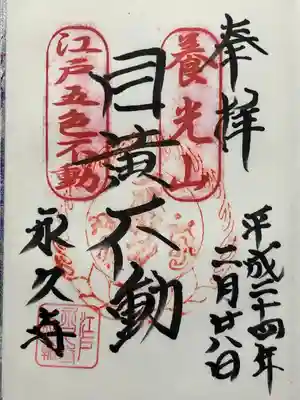 奉拝
平成二十四年
二月廿八日
養光山
目黄不動
江戸五色不動
永久寺